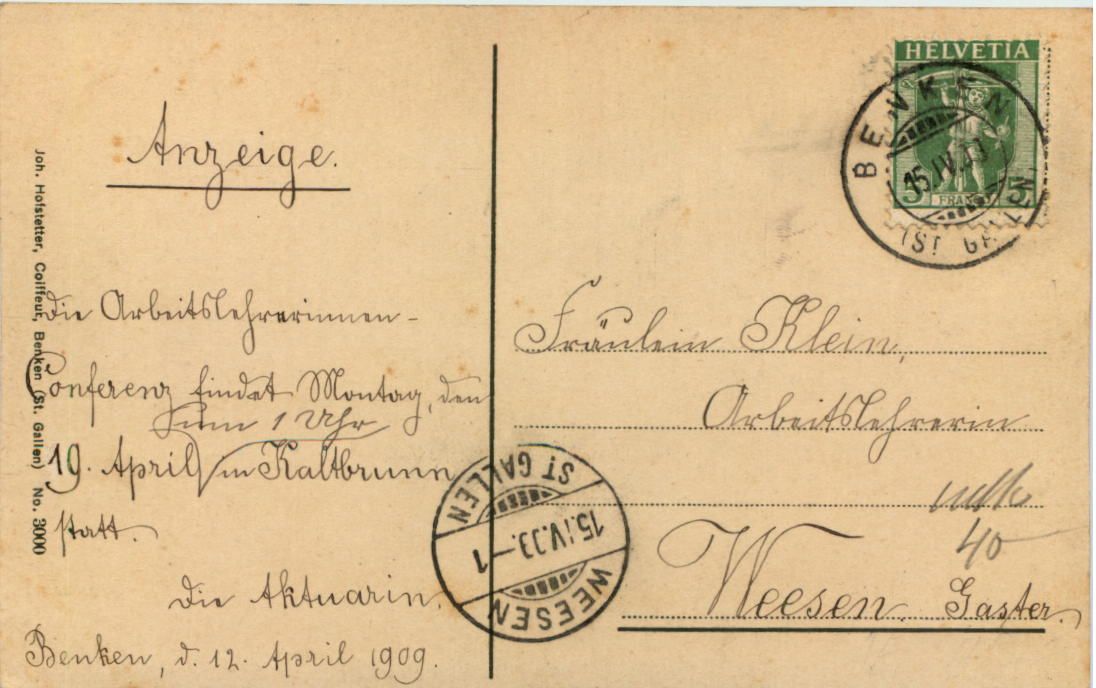 Anzeige.
Die Arbeitslehrerinnen-
Conferenz findet Montag, den
um 1 Uhr
19. April in Kaltbrunn
statt.
Die Aktuarin.
Benken, d. 12. April 1909.
Joh. Hofstetter, Coiffeur, Benken (St. Gallen) No. 3000
HELVETIA
5 FRANCO 5
BENKEN
15.IV.09
(ST. GALLEN)
Fräulein Klein,
Arbeitslehrerin
40
Weesen. Gaster.
ST. GALLEN
15.IV.09.-1
WEESEN